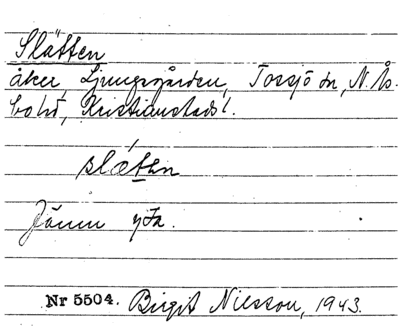 Slätten
åker, Ljungsgården, Tossjö sn, N. Ås-
bo hd, Kristianstads l.
slǽten
Jämn yta.
Nr 5504. Birgit Nilsson, 1943.